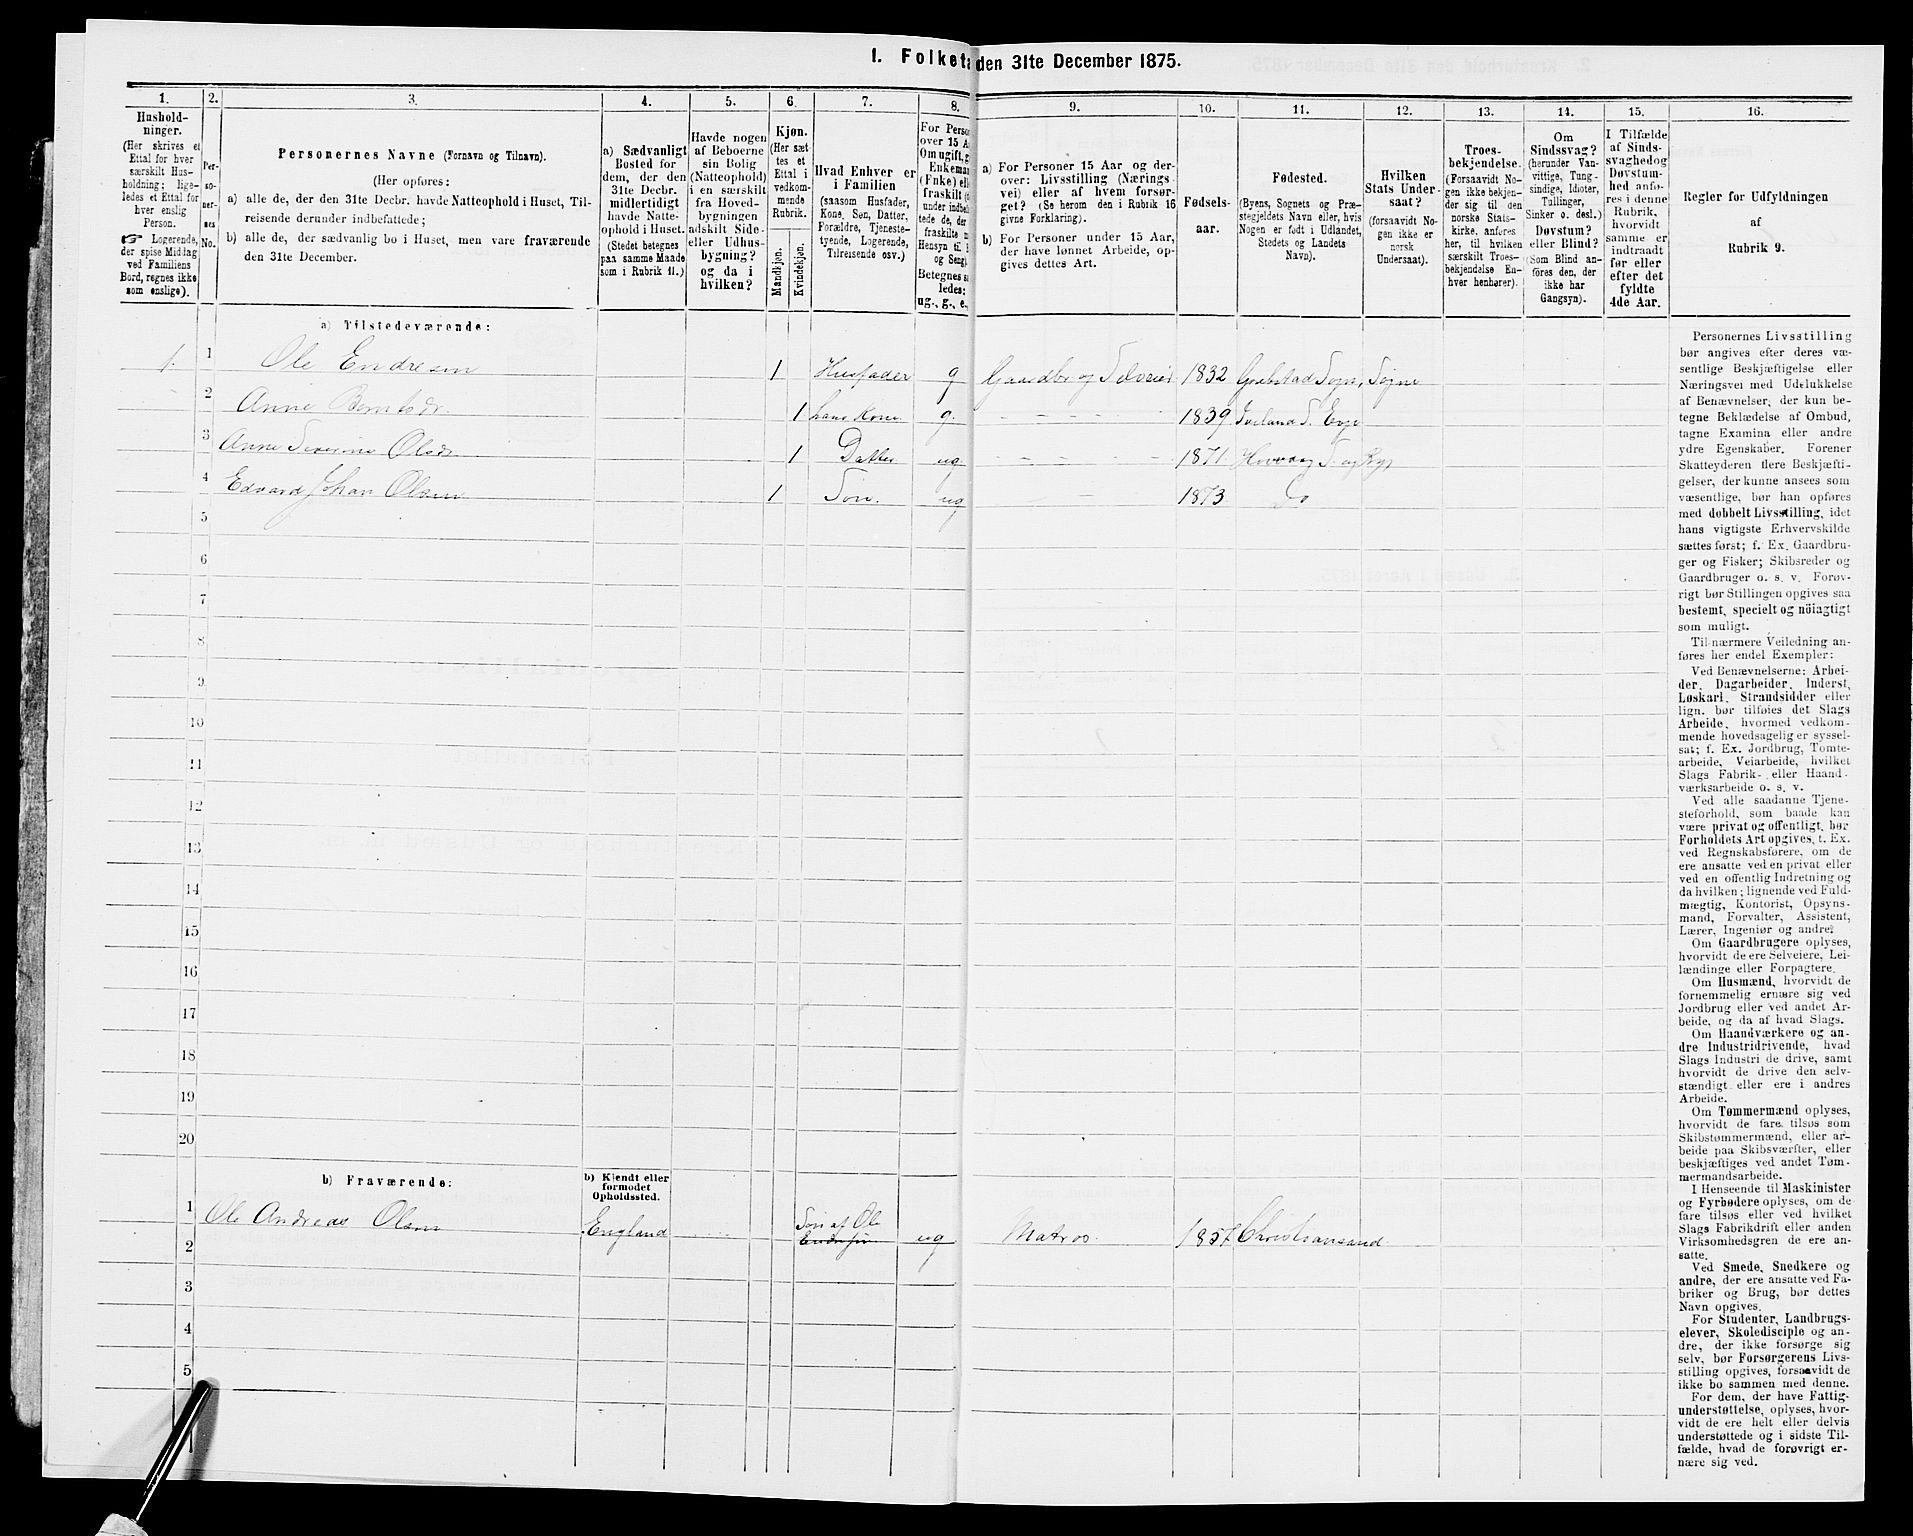 1. Folketæ den 31te December 1875.
1. 2. 3. 4. 5. 6. 7. 8. 9. 10. 11. 12. 13. 14. 15. 16.
Hushold-
ninger.
(Her skrives et
Ettal for hver
særskilt Hus-
holdning; lige-
ledes et Ettal for
hver enslig
Person.
☞ Logerende,
der spise Middag
ved Familiens
Bord, regnes ikke
som enslige).
Per-
so-
ner-
nes
No.
Personernes Navne (Fornavn og Tilnavn).
(Her opføres:
a) alle de, der den 31te Decbr. havde Natteophold i Huset, Til-
reisende derunder indbefattede;
b) alle de, der sædvanlig bo i Huset, men vare fraværende
den 31te December.
a) Sædvanligt
Bosted for
dem, der den
31te Decbr.
midlertidigt
havde Natte-
ophold i Huset.
(Stedet betegnes
paa samme Maade
som i Rubrik 11.)
Havde nogen
af Beboerne
sin Bolig
(Natteophold)
i en særskilt
fra Hoved-
bygningen
adskilt Side-
eller Udhus-
bygning?
og da i
hvilken?
Kjøn.
(Her sæt-
tes et
Ettal i
vedkom-
mende
Rubrik.
Mandkjøn.
Kvindekjøn.
Hvad Enhver er
i Familien
(saasom Husfader,
Kone, Søn, Datter,
Forældre, Tjeneste-
tyende, Logerende,
Tilreisende osv.)
For Perso
over 15 Aa
Om ugift, g
Enkeman
(Enke) ell
fraskilt (
under indbe
tede de, der
fraskilte m
Hensyn til B
og Seng).
Betegnes sa
ledes:
ug., g., e.,
a) For Personer 15 Aar og der-
over: Livsstilling (Nærings-
vei) eller af hvem forsør-
get? (Se herom den i Rubrik 16
givne Forklaring).
b) For Personer under 15 Aar,
der have lønnet Arbeide, op-
gives dettes Art.
Fødsels-
aar.
Fødested.
(Byens, Sognets og Præ-
stegjeldets Navn eller, hvis
Nogen er født i Udlandet,
Stedets og Landets
Navn).
Hvilken
Stats Under-
saat?
(forsaavidt No-
gen ikke er
norsk
Undersaat).
Troes-
bekjendelse.
(Forsaavidt No-
gen ikke bekjen-
der sig til den
norske Stats-
kirke, anføres
her, til hvilken
særskilt Troes-
bekjendelse En-
hver henhører).
Om
Sindssvag?
(herunder Van-
vittige, Tung-
sindige, Idioter,
Tullinger,
Sinker o. desl.)
Døvstum?
eller Blind?
(Som Blind an-
føres den, der
ikke har
Gangsyn).
I Tilfælde
af Sinds-
svaghed og
Døvstum-
hed anfø-
res i denne
Rubrik,
hvorvidt
samme er
indtraadt
før eller
efter det
fyldte
4de Aar.
Regler for Udfyldningen
af
Rubrik 9.
a) Tilstedeværende:
1. 1 Ole Endresen 1 Husfader g Gaardbr og Selveier 1832 Sogn, Søgne
2 Anne Berntsdr. 1 hans Kone g. 1839 Iveland S. Evje
3 Anne Severine Olsdr 1 Datter ug 1871
4 Edvard Johan Olsen 1 Søn. ug 1873 Do
5
6
7
8
9
10
11
12
13
14
15
16
17
18
19
20
b) Fraværende:
b) Kjendt eller
formodet
Opholdssted.
1 Ole Andreas Olsen England Søn af Ole
Endresen ug Matros. 1857 Christiansand.
2
3
4
5
Personernes Livsstilling
bør angives efter deres væ-
sentlige Beskjæftigelse eller
Næringsvei med Udelukkelse
af Benævnelser, der kun be-
tegne Beklædelse af Ombud,
tagne Examina eller andre
ydre Egenskaber. Forener
Skatteyderen flere Beskjæfti-
gelser, der kunne ansees som
væsentlige, bør han opføres
med dobbelt Livsstilling, idet
hans vigtigste Erhvervskilde
sættes først; f. Ex. Gaardbru-
ger og Fisker; Skibsreder og
Gaardbruger o. s. v. Forøv-
rigt bør Stillingen opgives saa
bestemt, specielt og nöiagtigt
som muligt.
Til nærmere Veiledning an-
føres her endel Exempler:
Ved Benævnelserne: Arbei-
der, Dagarbeider, Inderst,
Løskarl, Strandsidder eller
lign. bør tilføies det Slags
Arbeide, hvormed vedkom-
mende hovedsagelig er syssel-
sat; f. Ex. Jordbrug, Tomte-
arbeide, Veiarbeide, hvilket
Slags Fabrik- eller Haand-
værksarbeide o. s. v.
Ved alle saadanne Tjene-
steforhold, som baade kan
være privat og offentligt, bør
Forholdets Art opgives, t. Ex.
ved Regnskabsførere, om de
ere ansatte ved en privat eller
ved en offentlig Indretning og
da hvilken; lignende ved Fuld-
mægtig, Kontorist, Opsyns-
mand, Forvalter, Assistent,
Lærer, Ingeniør og andre.
Om Gaardbrugere oplyses,
hvorvidt de ere Selveiere, Lei-
lændinge eller Forpagtere.
Om Husmænd, hvorvidt de
fornemmelig ernære sig ved
Jordbrug eller ved andet Ar-
beide, og da af hvad Slags.
Om Haandværkere og an-
dre Industridrivende, hvad
Slags Industri de drive, samt
hvorvidt de drive den selv-
stændigt eller ere i andres
Arbeide.
Om Tømmermænd oplyses,
hvorvidt de fare tilsøs som
Skibstømmermænd, eller ar-
beide paa Skibsværfter, eller
beskjæftiges ved andet Tøm-
mermandsarbeide.
I Henseende til Maskinister
og Fyrbødere oplyses, om de
fare tilsøs eller ved hvilket
Slags Fabrikdrift eller anden
Virksomhedsgren de ere an-
satte.
Ved Smede, Snedkere og
andre, der ere ansatte ved Fa-
briker og Brug, bør dettes
Navn opgives.
For Studenter, Landbrugs-
elever, Skoledisciple og an-
dre, der ikke forsørge sig
selv, bør Forsørgerens Livs-
stilling opgives, forsaavidt de
ikke bo sammen med denne.
For dem, der have Fattig-
understøttelse, oplyses, hvor-
vidt de ere helt eller delvis
understøttede og i sidste Til-
fælde, hvad de forøvrigt er-
nære sig ved.